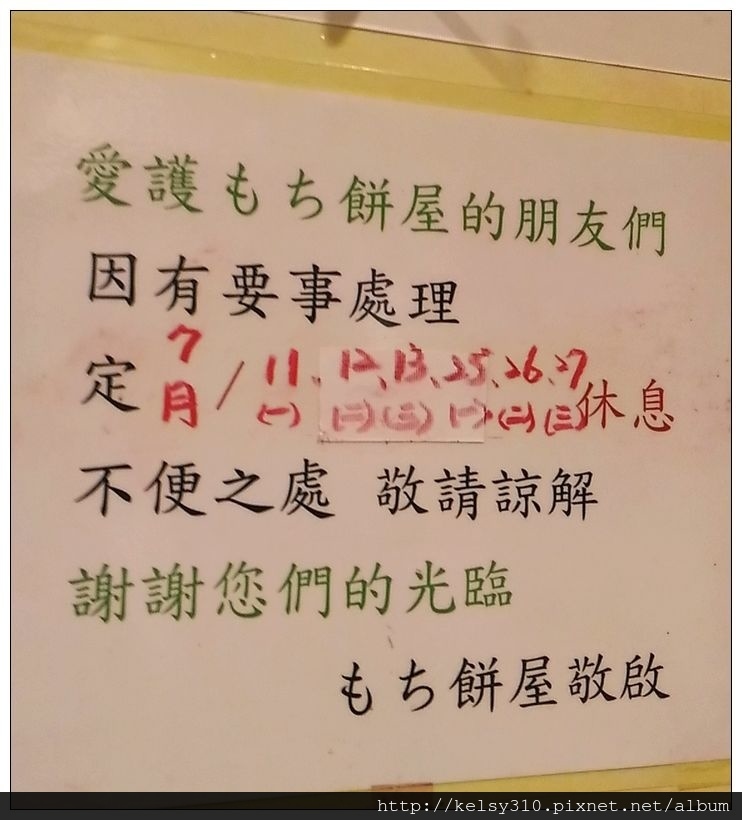 愛護もち餅屋的朋友們
因有要事處理
定7月/11、12、13、25、26、27休息
(一)(二)(三)(一)(二)(三)
不便之處 敬請諒解
謝謝您們的光臨
もち餅屋敬啟
http://kelsy310.pixnet.net/album